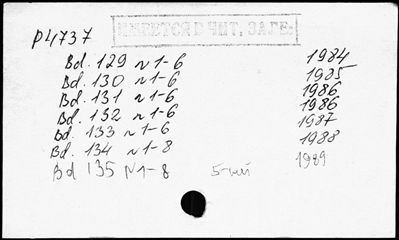 ИМЕЕТСЯ В ЧИТ. ЗАЛЕ.
P4737
Bd. 129 N 1-6 1984
Bd. 130 N 1-6 1985
Bd. 131 N 1-6 1986
Bd. 132 N 1-6 1986
Bd. 133 N 1-6 1987
Bd. 134 N 1-8 1988
Bd 135 N 1-8 5-ний 1989